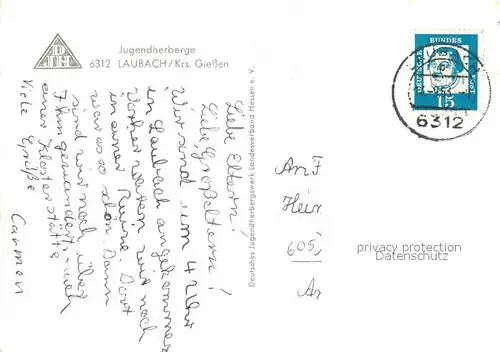 DJH
Jugendherberge
6312 LAUBACH / Krs. Gießen
Deutsches Jugendherbergswerk Landesverband Hessen e. V.
DEUTSCHE BUNDESPOST
15
6312
Liebe Eltern!
Liebe Großeltern!
Wir sind um 4 Uhr
in Laubach angekommen
Vorher waren wir noch
in einer Ruine. Dort
war es so schön. Dann
sind wir noch über
7 km gewandert, nach
einer Klosterstätte
Viele Grüße
Carmen
An F
Hein
605
An
privacy protection
Datenschutz